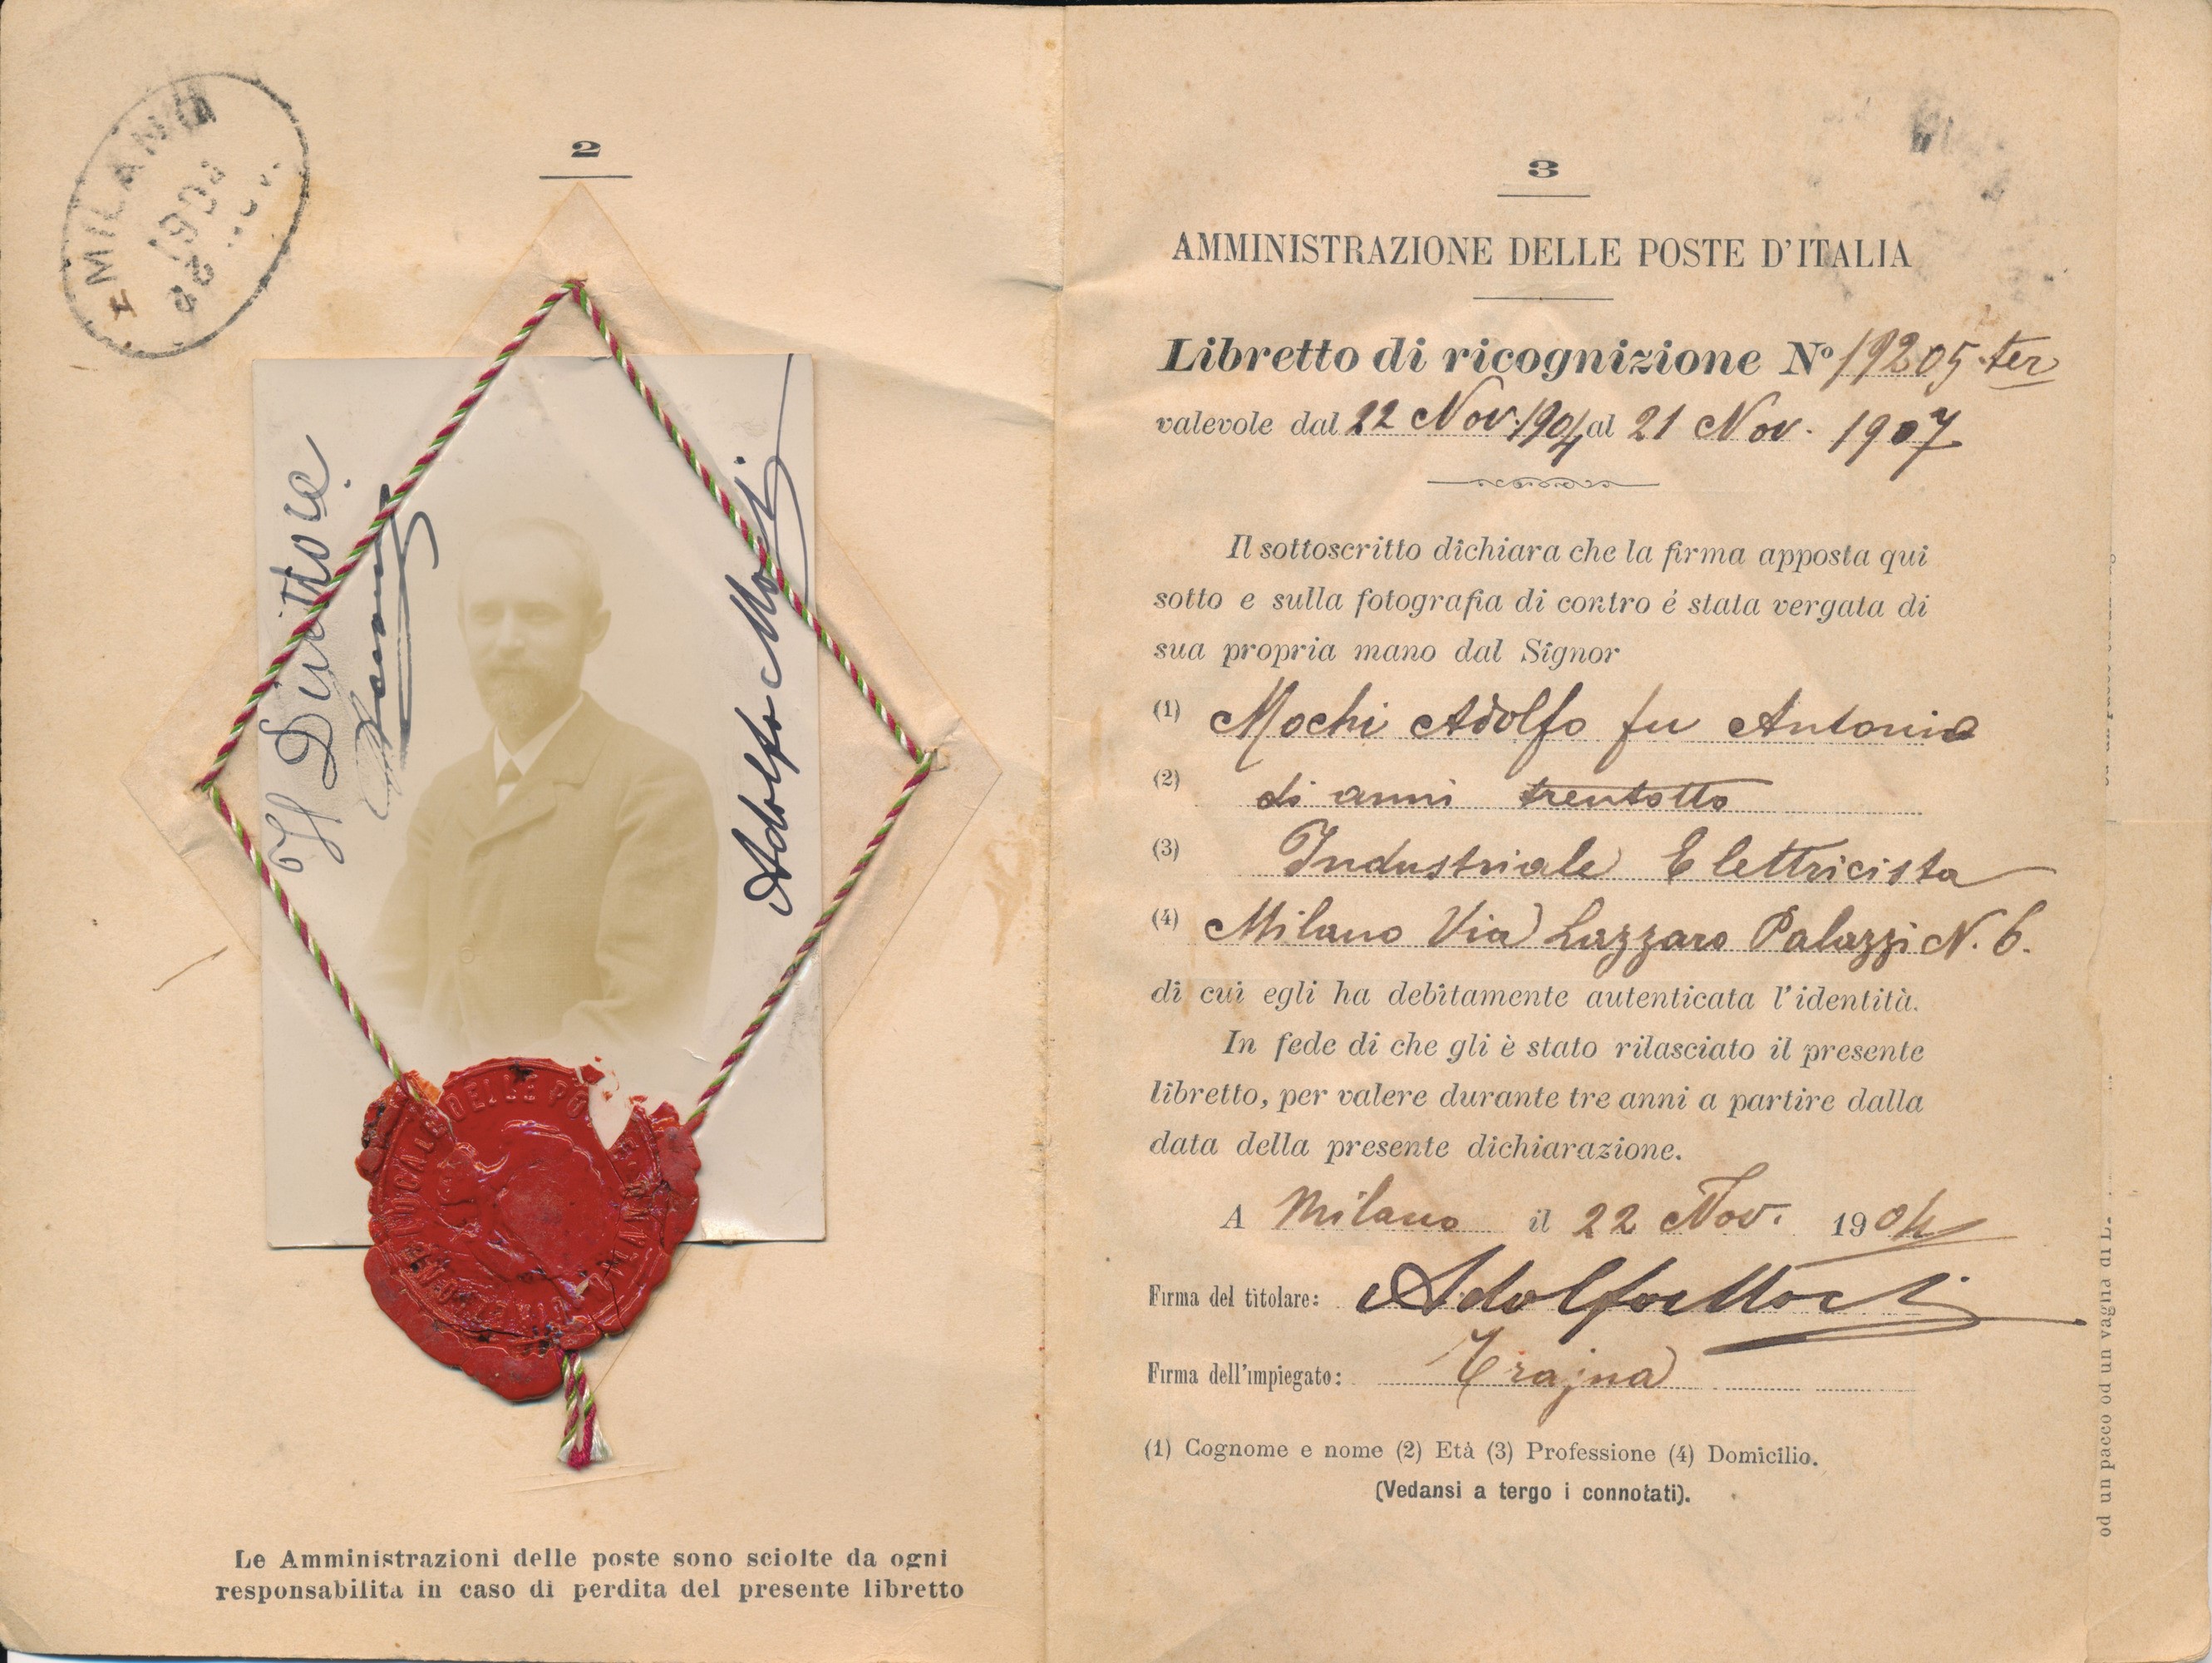 MILANO
2
Il Direttore
Adolfo Mochi
DELLE PO
Le Amministrazioni delle poste sono sciolte da ogni
responsabilita in caso di perdita del presente libretto
3
AMMINISTRAZIONE DELLE POSTE D'ITALIA
Libretto di ricognizione Nº 19205 ter
valevole dal 22 Nov. 1904 al 21 Nov. 1907
Il sottoscritto dichiara che la firma apposta qui
sotto e sulla fotografia di contro é stata vergata di
sua propria mano dal Signor
(1) Mochi Adolfo fu Antonio
(2) di anni trentotto
(3) Industriale Elettricista
(4) Milano Via Lazzaro Palazzi N. 6.
di cui egli ha debitamente autenticata l'identità.
In fede di che gli è stato rilasciato il presente
libretto, per valere durante tre anni a partire dalla
data della presente dichiarazione.
A Milano il 22 Nov. 1904
Firma del titolare: Adolfo Mochi
Firma dell'impiegato: Trajna
(1) Cognome e nome (2) Età (3) Professione (4) Domicilio.
(Vedansi a tergo i connotati).
od un pacco od un vagna di L.